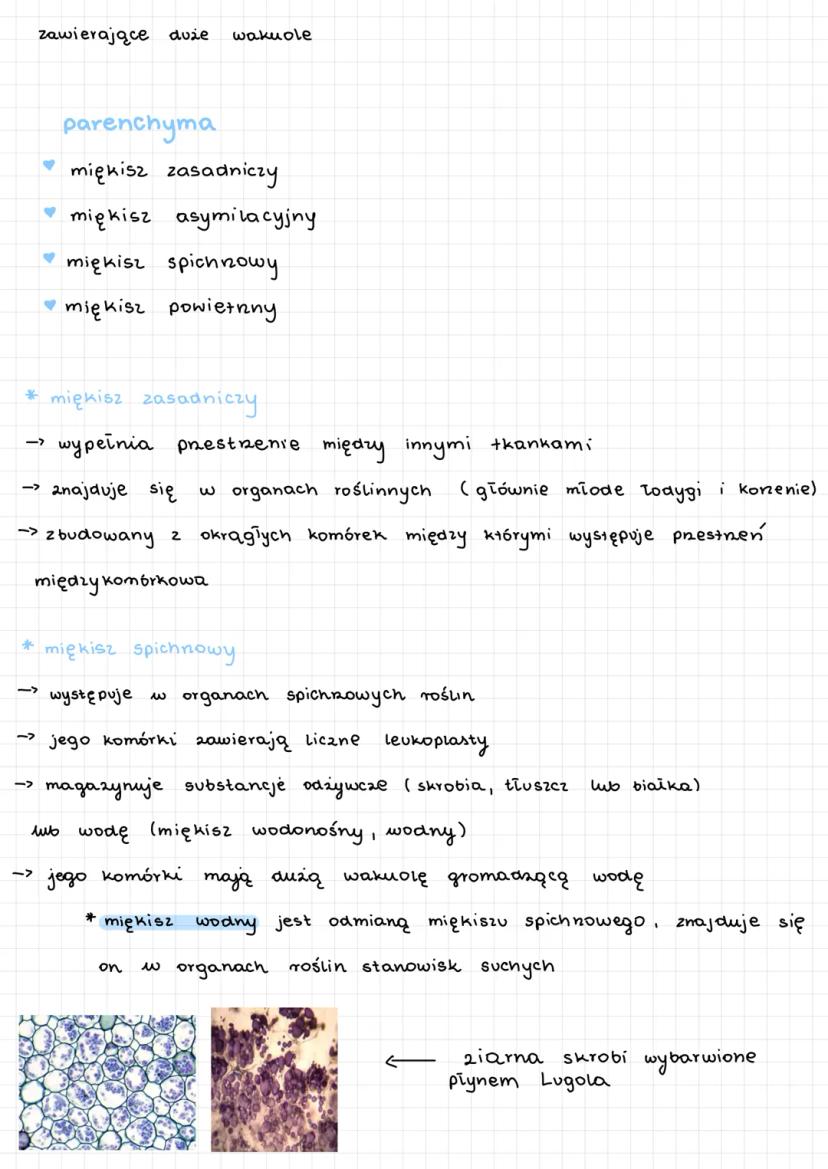 zawierające duże wakuole
parenchyma
miękisz zasadniczy
miękisz asymilacyjny
miękisz spichrzowy
miękisz powietrzny
* miękisz zasadniczy
→ wypełnia przestrzenie między innymi tkankami
→ znajduje się w organach roślinnych (głównie młode łodygi i korzenie)
→ zbudowany z okrągłych komórek między którymi występuje przestrzeń
międzykomórkowa
* miękisz spichrzowy
→ występuje w organach spichrzowych roślin
→ jego komórki zawierają liczne leukoplasty
→ magazynuje substancje odżywcze (skrobia, tłuszcz lub białka)
lub wodę (miękisz wodonośny, wodny)
→ jego komórki mają dużą wakuolę gromadzącą wodę
* miękisz wodny jest odmianą miękiszu spichrzowego, znajduje się
on w organach roślin stanowisk suchych
← ziarna skrobi wybarwione
płynem Lugola